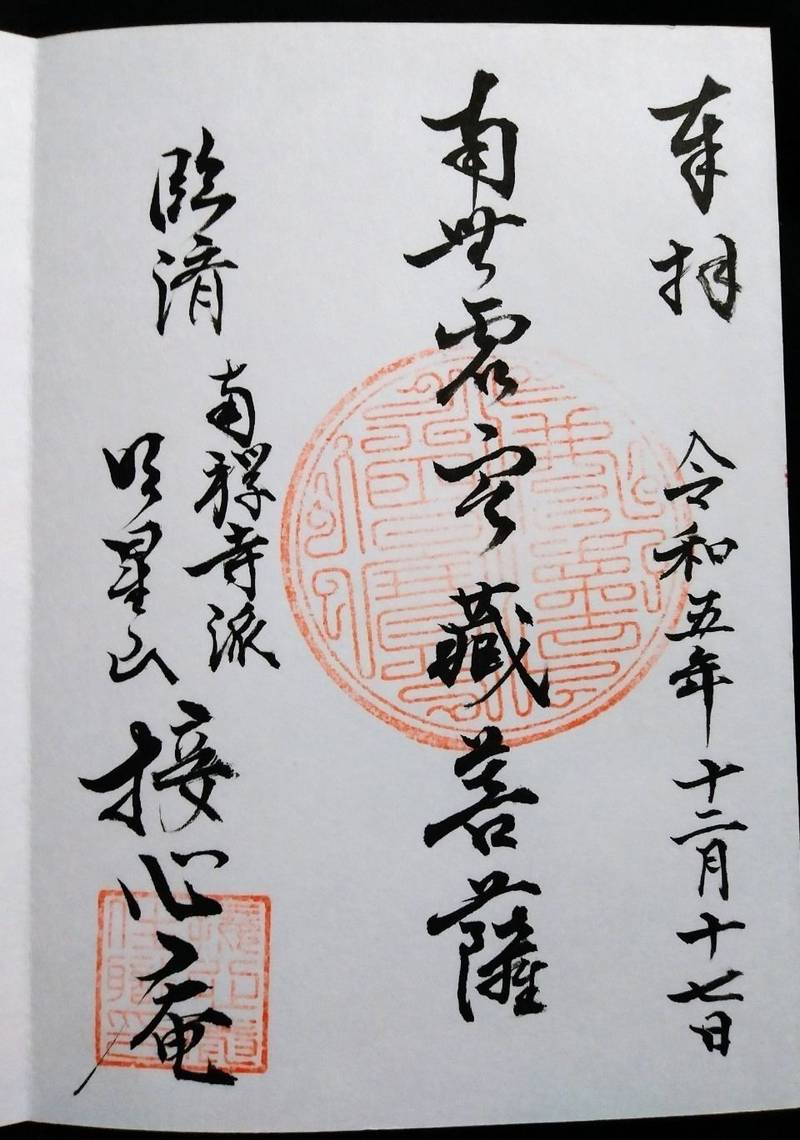 奉拝
令和五年十二月十七日
南無虚空蔵菩薩
臨済
南禅寺派
明星山
接心庵